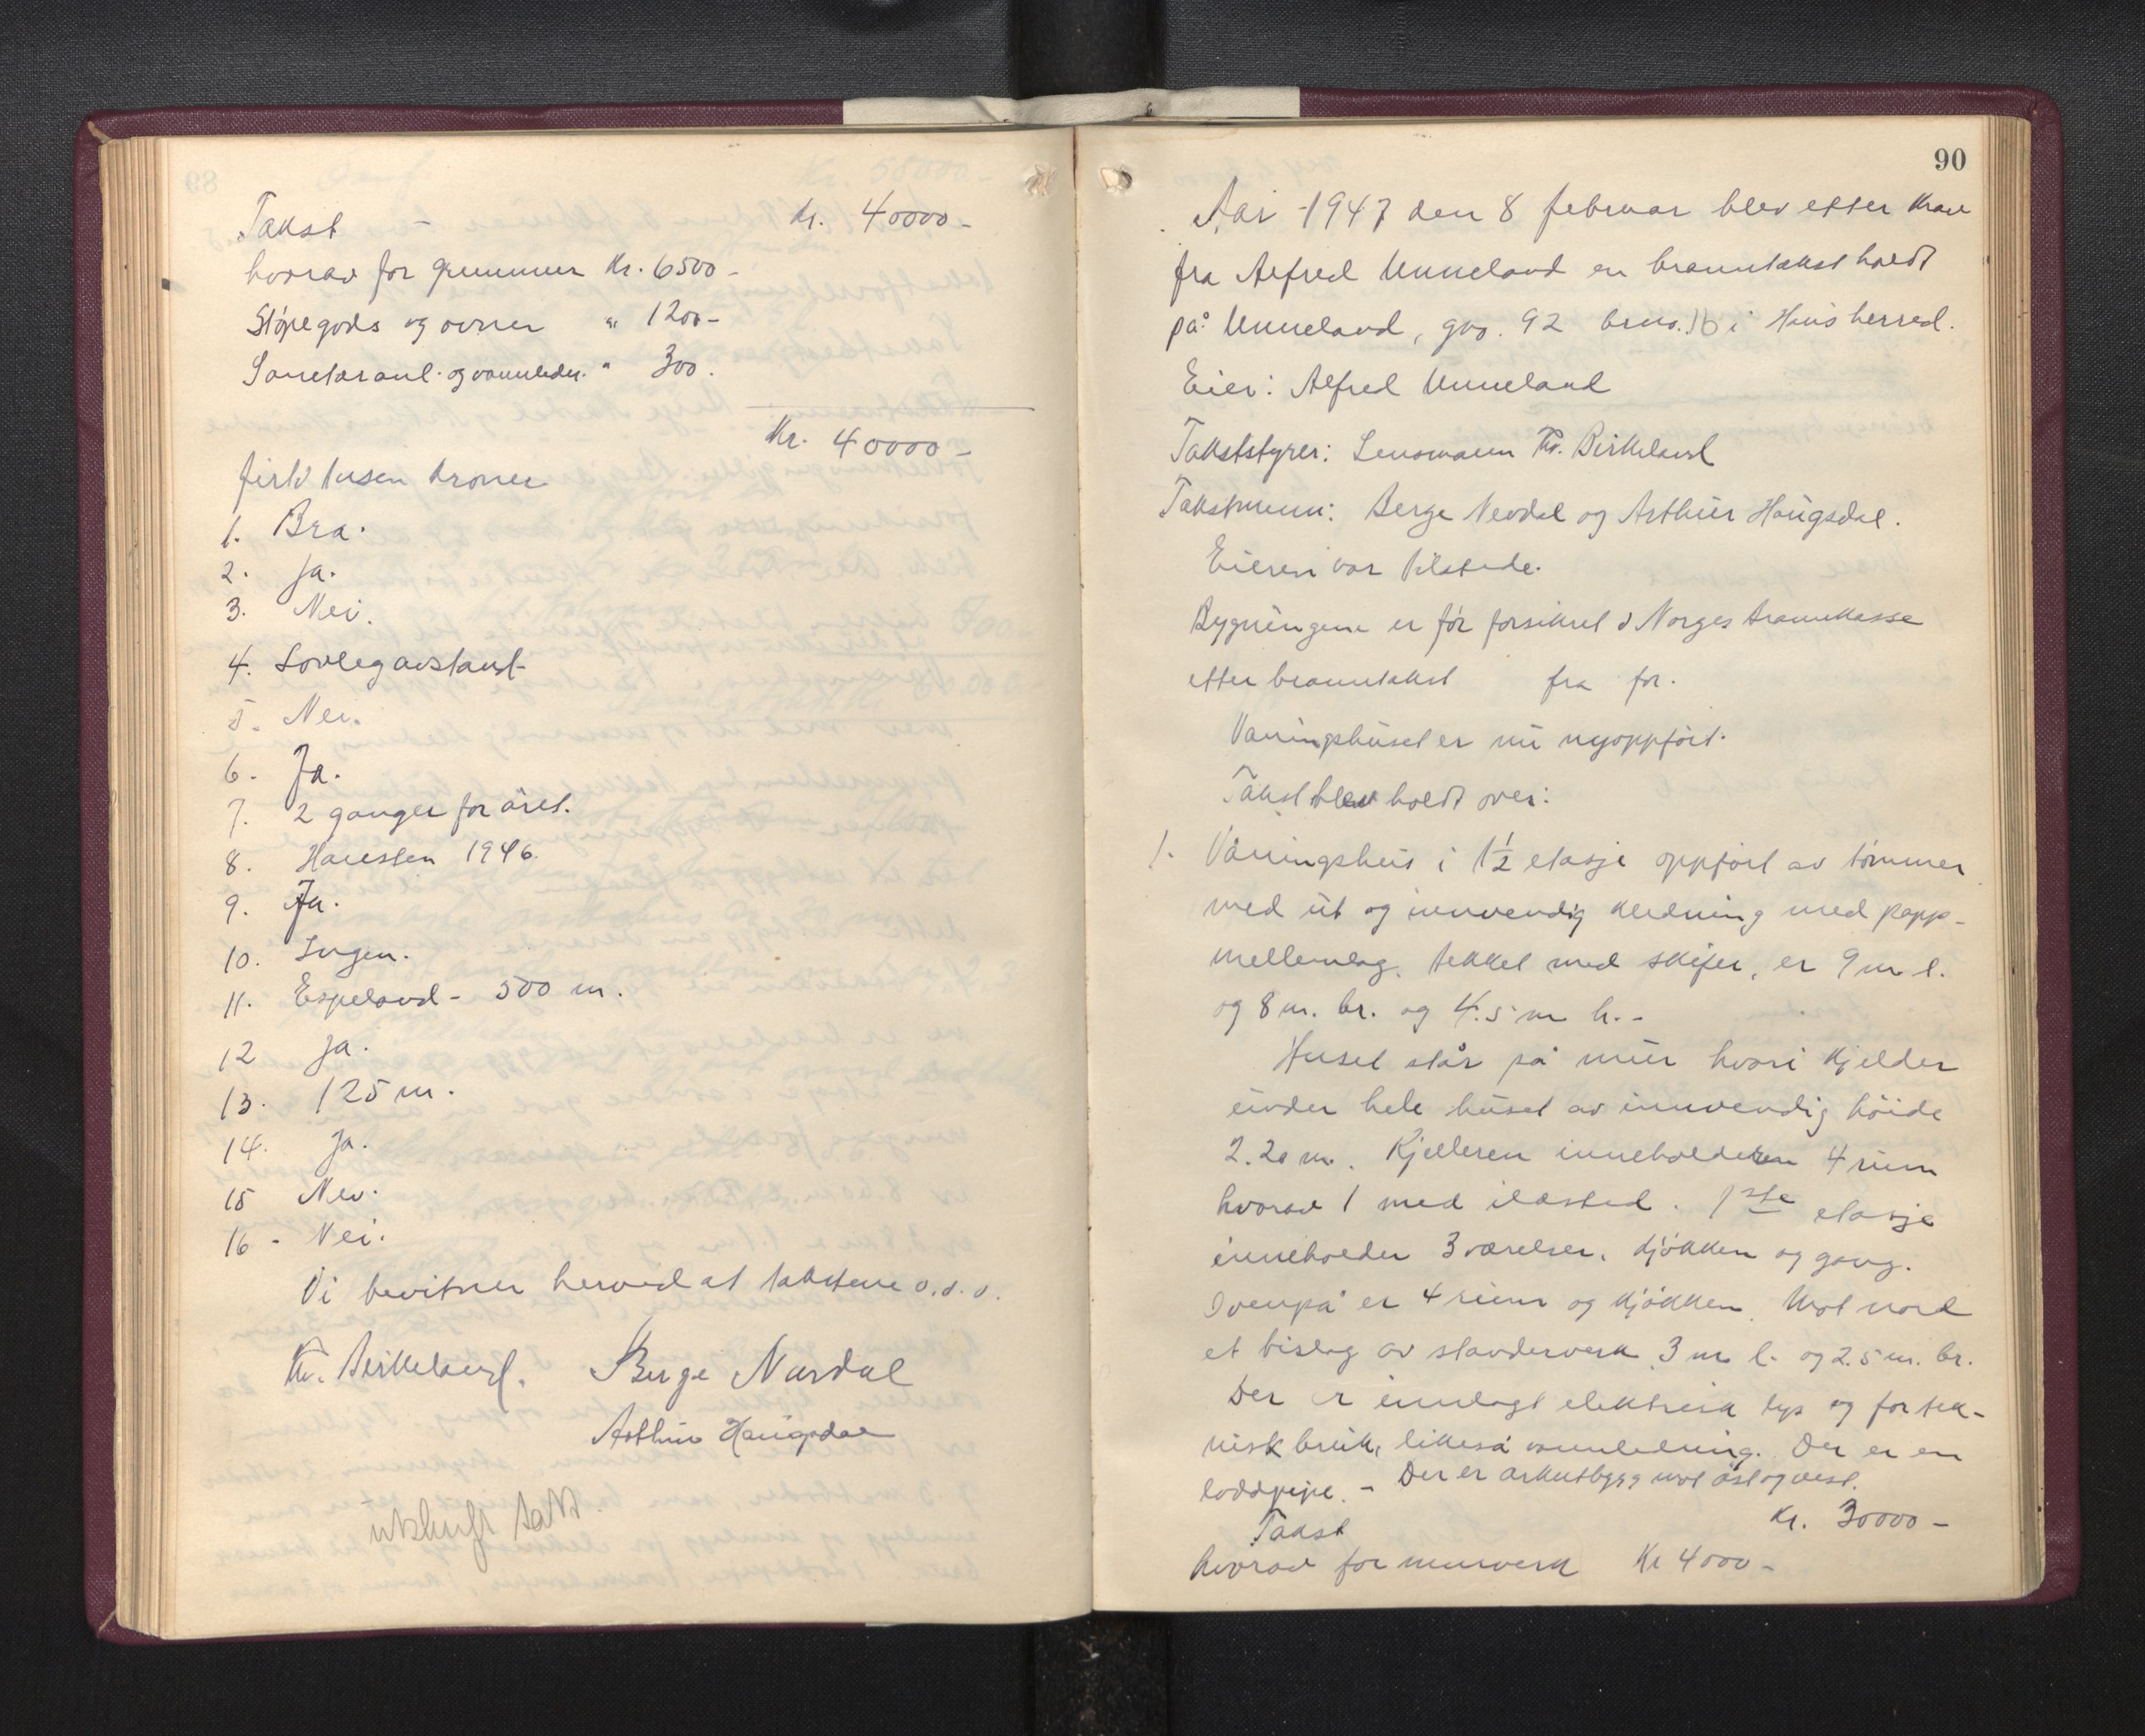 Takst - kr. 40000 -
hvorav for grunnmur kr. 6500 -
Støpegods og ovner " 1200 -
Sanetæranl. og vannledn. " 300.
Kr. 40000 -
førti tusen kroner
1. Bra.
2. Ja.
3. Nei.
4. Lovleg avstand
5. Nei.
6. Ja.
7. 2 ganger for året.
8. Høuesten 1946.
9. Ja.
10. Ingen.
11. Espeland - 500 m.
12 Ja.
13. 125 m.
14. Ja.
15 Nei.
16 - Nei.
Vi bevitner herved at takstene o.s.v.
Kr. Birkeland. Berge Nævdal
Arthur Haugsdal
utskrift tatt.
90
Aar 1947 den 8 februar blev etter krav
fra Alfred Unneland en branntakst holdt
på Unneland, gno. 92 brno. 16 i Haus herred.
Eier: Alfred Unneland
Takststyrer: Lensmann Kr. Birkeland
Takstmenn: Berge Nevdal og Arthur Haugsdal.
Eieren var tilstede.
Bygningene er før forsikret i Norges brannkasse
etter branntakst fra for.
Vaningshuset er nu nyoppført.
Takst blev holdt over:
1. Våningshus i 1½ etasje oppført av tømmer
med ut og innvendig kledning med papp-
mellemlag, tekket med skifer, er 9 m l.
og 8 m. br. og 4.5 m h. -
Huset står på mur hvori kjelder
under hele huset av innvendig høide
2.20 m. Kjelleren inneholder 4 rum
hvorav 1 med ildsted. 1ste etasje
inneholder 3 værelser, kjøkken og gang.
Ovenpå er 4 rum og kjøkken. Mot nord
et bislag av stavderverk 3 m l. og 2.5 m. br.
Der er innlagt elektrisk lys og for tek-
nisk bruk, likeså vannledning. Der er en
loddpipe. - Der er arkutbygg mot øst og vest.
Takst kr. 30000 -
hvorav for murverk Kr 4000 -